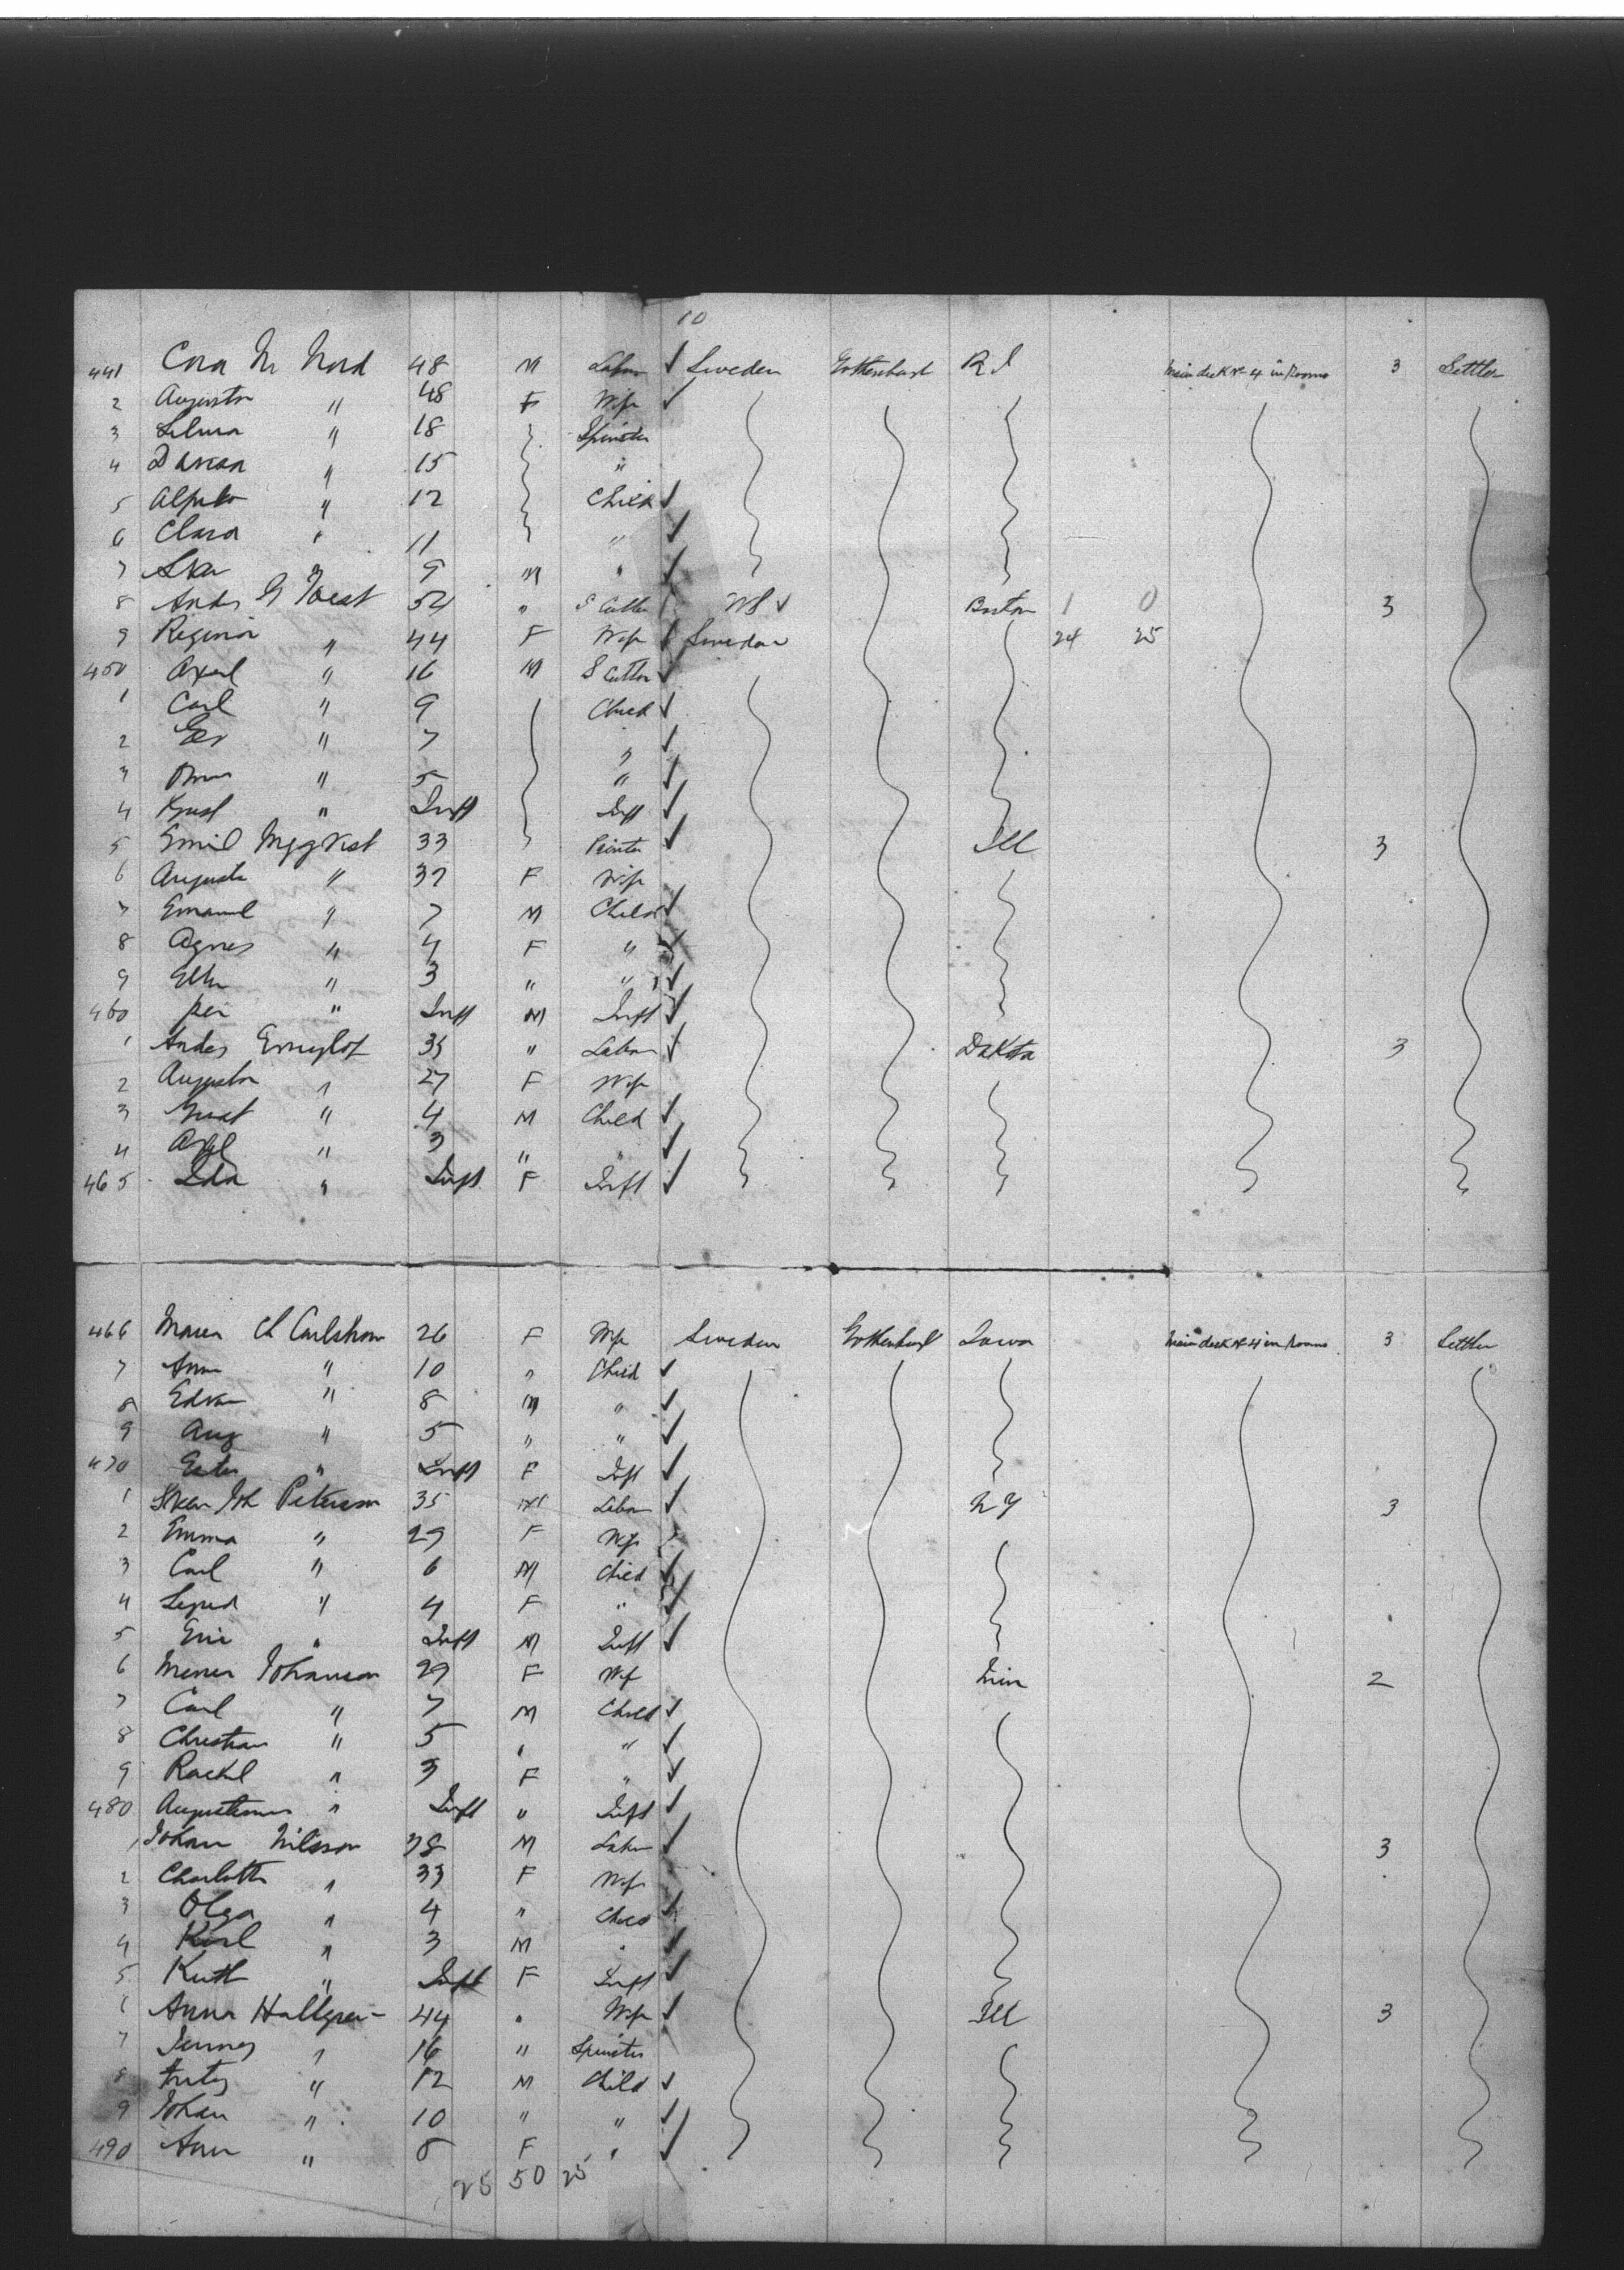 10
441 Nord 48 M Labor Sweden Gothenburg R I Main deck No 4 in Rooms 3 Settler
2 Augusta " 48 F Wife
3 Selma " 18 Spinster
4 " 15 "
5 " 12 Child
6 Clara " 11 "
7 " 9 M "
8 Anders 54 " S Cutter US Boston 1 0 3
9 Regina " 44 F Wife Sweden 24 25
450 Axel " 16 M S Cutter
1 Carl " 9 Child
2 " 7 "
3 " 5 "
4 " Inft Inft
5 Emil 33 Painter Ill 3
6 Augusta " 37 F Wife
7 Emanuel " 7 M Child
8 Agnes " 4 F "
9 " 3 " "
460 " Inft M Inft
1 Anders 35 " Labor Dakota 3
2 Augusta " 27 F Wife
3 " 4 M Child
4 Axel " 3 " "
465 Ida " Inft F Inft
466 Maria Carlstrom 26 F Wife Sweden Gothenburg Iowa Main deck No 4 in Rooms 3 Settler
7 Ann " 10 " Child
8 " 8 M "
9 Aug " 5 " "
470 Ester " Inft F Inft
1 Peterson 35 M Labor N Y 3
2 Emma " 29 F Wife
3 Carl " 6 M Child
4 " 4 F "
5 Eric " Inft M Inft
6 Johanson 29 F Wife Min 2
7 Carl " 7 M Child
8 Christian " 5 " "
9 Rachl " 3 F "
480 " Inft " Inft
1 Johan Nilsson 38 M Labor 3
2 Charlotta " 33 F Wife
3 Olga " 4 " Child
4 Karl " 3 M "
5 Ruth " Inft F Inft
6 Anna Hallgren 44 " Wife Ill 3
7 Jenney " 16 " Spinster
8 " 12 M Child
9 Johan " 10 " "
490 Ann " 8 F "
25 50 25